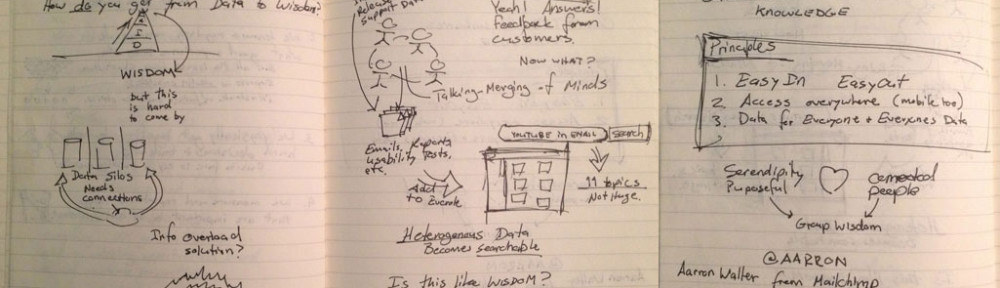 How do you get from Data to Wisdom?
I
D
WISDOM
but this
is hard
to come by
Data Silos
Needs
connections
Info overload
solution?
Release
Support Data
Yeah! Answers!
feedback from
customers.
NOW WHAT?
Talking-Merging of Minds
Emails, Reports,
usability tests,
etc.
Add
to Evernote
YOUTUBE in EMAIL SEARCH
11 topics
Not huge.
Heterogenous Data
Becomes searchable
Is this like WISDOM?
KNOWLEDGE
Principles
1. Easy In Easy Out
2. Access everywhere (mobile too)
3. Data for Everyone + Everyones Data
Serendipity
Purposeful
connected
people
Group Wisdom
@AARRON
Aarron Walter from Mailchimp